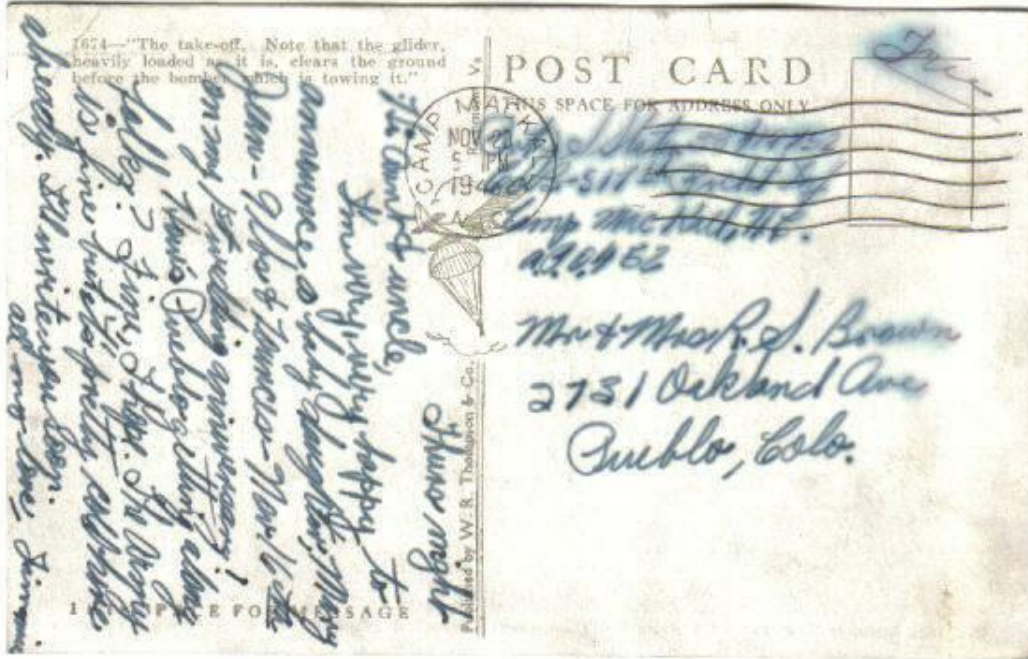 1674—"The take-off. Note that the glider,
heavily loaded as it is, clears the ground
before the bomber which is towing it."
POST CARD
THIS SPACE FOR ADDRESS ONLY
CAMP MACKALL
NOV 20
5 PM
194
N.C.
Free
Camp MacKall, N.C.
A.P.O. 452
Mr & Mrs R. S. Brown
2731 Oakland Ave
Pueblo, Colo.
Published by W. R. Thompson & Co.
THIS SPACE FOR MESSAGE
Thurs night
Aunt and uncle,
I'm very, very happy to
announce a baby daughter, Mary
Jean - 9 lbs at Nov 16 th
on my 1st wedding anniversary!
How's Pueblo getting along
folks? Fine, I hope. The Army
is fine but it's pretty cold here
already. I'll write you soon.
all my love Jim